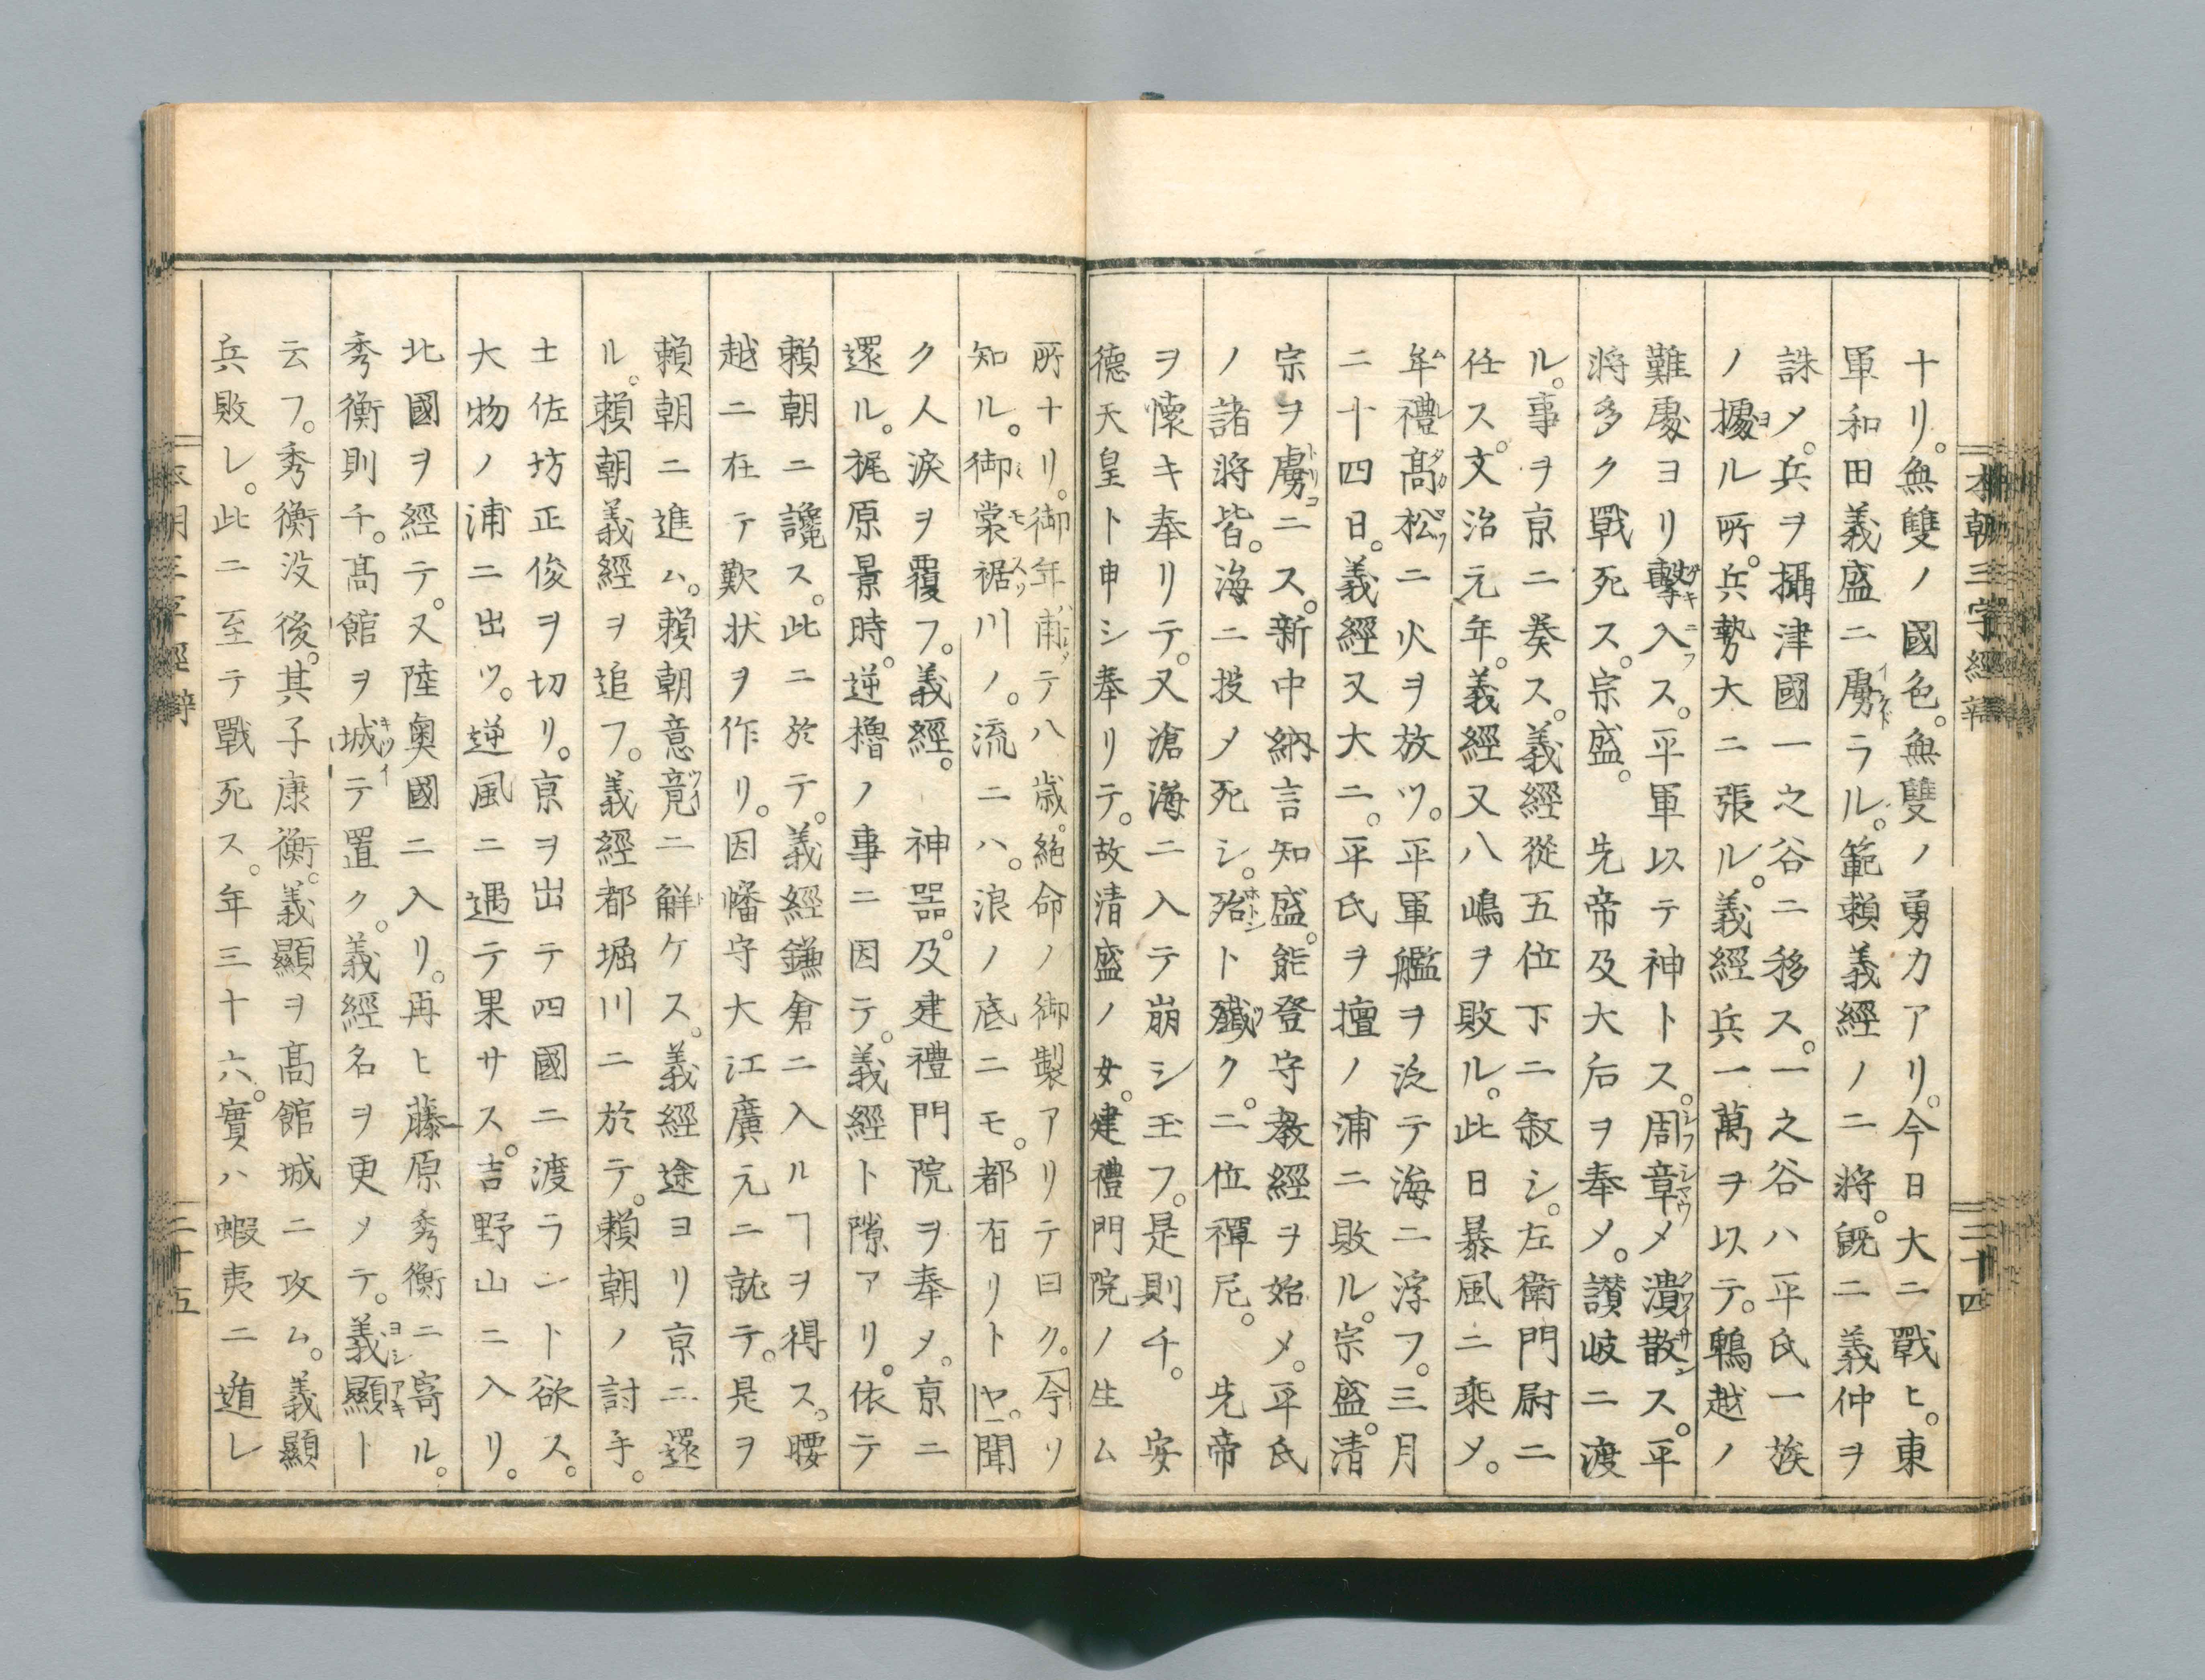 本朝三字經
二十四
ナリ。無雙ノ國色。無雙ノ勇力アリ。今日大ニ戰ヒ。東
軍和田義盛ニ虜ラル。範頼義經ノ二將。既ニ義仲ヲ
誅メ。兵ヲ攝津國一之谷ニ移ス。一之谷ハ平氏一族
ノ據ル所。兵勢大ニ張ル。義經兵一萬ヲ以テ。鵯越ノ
難處ヨリ擊入ス。平軍以テ神トス。周章メ潰散ス。平
將多ク戰死ス。宗盛。先帝及大后ヲ奉メ。讃岐ニ渡
ル。事ヲ亰ニ奏ス。義經從五位下ニ敘シ。左衛門尉ニ
任ス。文治元年。義經又八嶋ヲ敗ル。此日暴風ニ乘メ。
牟禮髙松ニ火ヲ放ツ。平軍艦ヲ泛テ海ニ浮フ。三月
二十四日。義經又大ニ。平氏ヲ壇ノ浦ニ敗ル。宗盛。清
宗ヲ虜ニス。新中納言知盛。能登守教經ヲ始メ。平氏
ノ諸將皆。海ニ投メ死シ。殆ト殱ク。二位禪尼。先帝
ヲ懷キ奉リテ。又滄海ニ入テ崩シ玉フ。是則チ。安
德天皇ト申シ奉リテ。故清盛ノ女。建禮門院ノ生ム
所ナリ。御年甫テ八歳。絶命ノ御製アリテ曰ク。今ソ
知ル。御裳裾川ノ。流ニハ。浪ノ底ニモ。都有リトヤ。聞
ク人涙ヲ覆フ。義經。神噐。及建禮門院ヲ奉メ。亰ニ
還ル。梶原景時。逆櫓ノ事ニ因テ。義經ト隙アリ。依テ
賴朝ニ讒ス。此ニ於テ。義經鎌倉ニ入ルヿヲ得ス。腰
越ニ在テ歎状ヲ作リ。因幡守大江廣元ニ就テ。是ヲ
賴朝ニ進ム。賴朝意竟ニ解ケス。義經途ヨリ亰ニ還
ル。賴朝義經ヲ追フ。義經都堀川ニ於テ。賴朝ノ討手。
士佐坊正俊ヲ切リ。亰ヲ出テ四國ニ渡ラント欲ス。
大物ノ浦ニ出ツ。逆風ニ遇テ果サス。吉野山ニ入リ。
北國ヲ經テ。又陸奥國ニ入リ。再ヒ藤原秀衡ニ寄ル。
秀衡則チ。髙館ヲ城テ置ク。義經名ヲ更メテ。義顯ト
云フ。秀衡没後。其子康衡。義顯ヲ髙館城ニ攻ム。義顯
兵敗レ。此ニ至テ戰死ス。年三十六。實ハ蝦夷ニ遁レ
本朝三字經辭
二十五